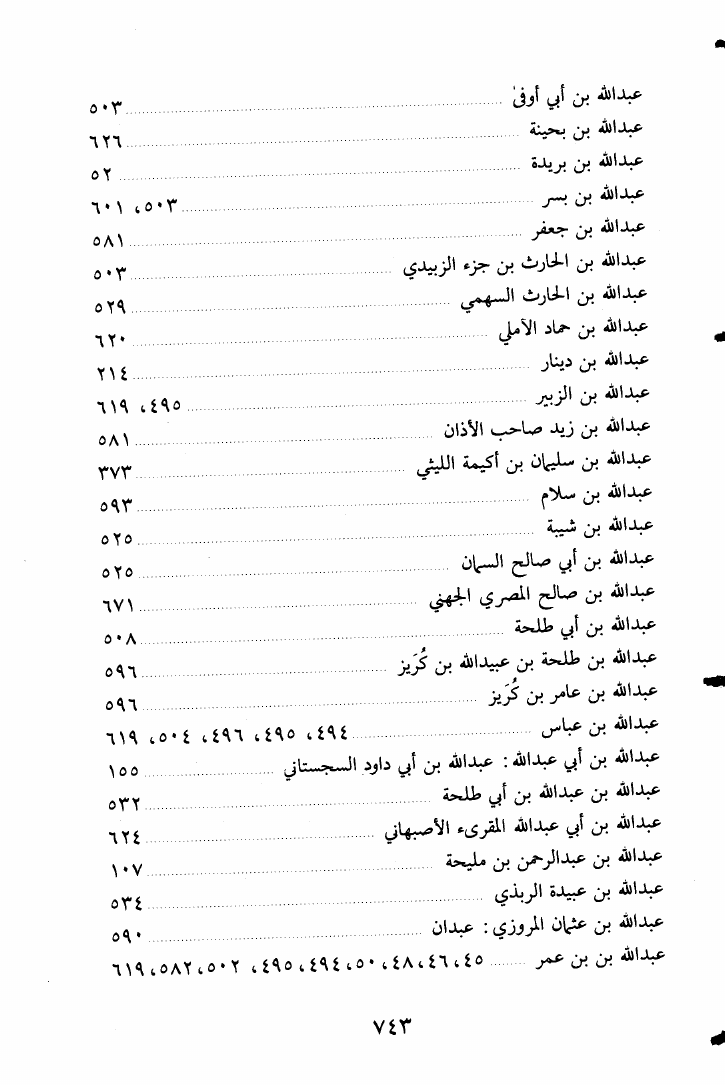 عبدالله بن أبي أوفىٰ ........ ٥٠٣
عبدالله بن بحينة ........ ٦٢٦
عبدالله بن بريدة ........ ٥٢
عبدالله بن بسر ........ ٥٠٣، ٦٠١
عبدالله بن جعفر ........ ٥٨١
عبدالله بن الحارث بن جزء الزبيدي ........ ٥٠٣
عبدالله بن الحارث السهمي ........ ٥٢٩
عبدالله بن حماد الآملي ........ ٦٢٠
عبدالله بن دينار ........ ٢١٤
عبدالله بن الزبير ........ ٤٩٥، ٦١٩
عبدالله بن زيد صاحب الأذان ........ ٥٨١
عبدالله بن سليمان بن أكيمة الليثي ........ ٣٧٣
عبدالله بن سلام ........ ٥٩٣
عبدالله بن شيبة ........ ٥٢٥
عبدالله بن أبي صالح السمان ........ ٥٢٥
عبدالله بن صالح المصري الجهني ........ ٦٧١
عبدالله بن أبي طلحة ........ ٥٠٨
عبدالله بن طلحة بن عبيدالله بن كُرَيز ........ ٥٩٦
عبدالله بن عامر بن كُرَيز ........ ٥٩٦
عبدالله بن عباس ........ ٤٩٤، ٤٩٥، ٤٩٦، ٥٠٤، ٦١٩
عبدالله بن أبي عبدالله: عبدالله بن أبي داود السجستاني ........ ١٥٥
عبدالله بن عبدالله بن أبي طلحة ........ ٥٣٢
عبدالله بن أبي عبدالله المقرىء الأصبهاني ........ ٦٢٤
عبدالله بن عبدالرحمن بن مليحة ........ ١٠٧
عبدالله بن عبيدة الربذي ........ ٥٣٤
عبدالله بن عثمان المروزي: عبدان ........ ٥٩٠
عبدالله بن بن عمر ........ ٤٥، ٤٦، ٤٨، ٥٠، ٤٩٤، ٤٩٥، ٥٠٢، ٥٨٢، ٦١٩
٧٤٣